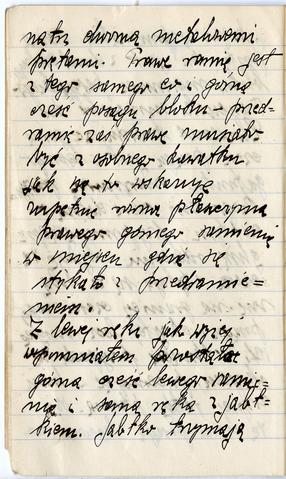 natrz dwoma metalowemi
prętami. Prawe ramię jest
z tego samego co i górna
cześć posągu bloku - przed-
ramię zaś prawe musiało
być z osobnego kawałku
jak się to wskazuje
zupełnie równa płaszczyzna
prawego górnego ramienia
w miejscu gdzie się
stykało z przedramie-
niem.
Z lewej ręki jak wyżej
wspomniałem pozostała
górna cześć lewego rami-
nia i sama ręka z jabł-
kiem. Jabłko trzymają